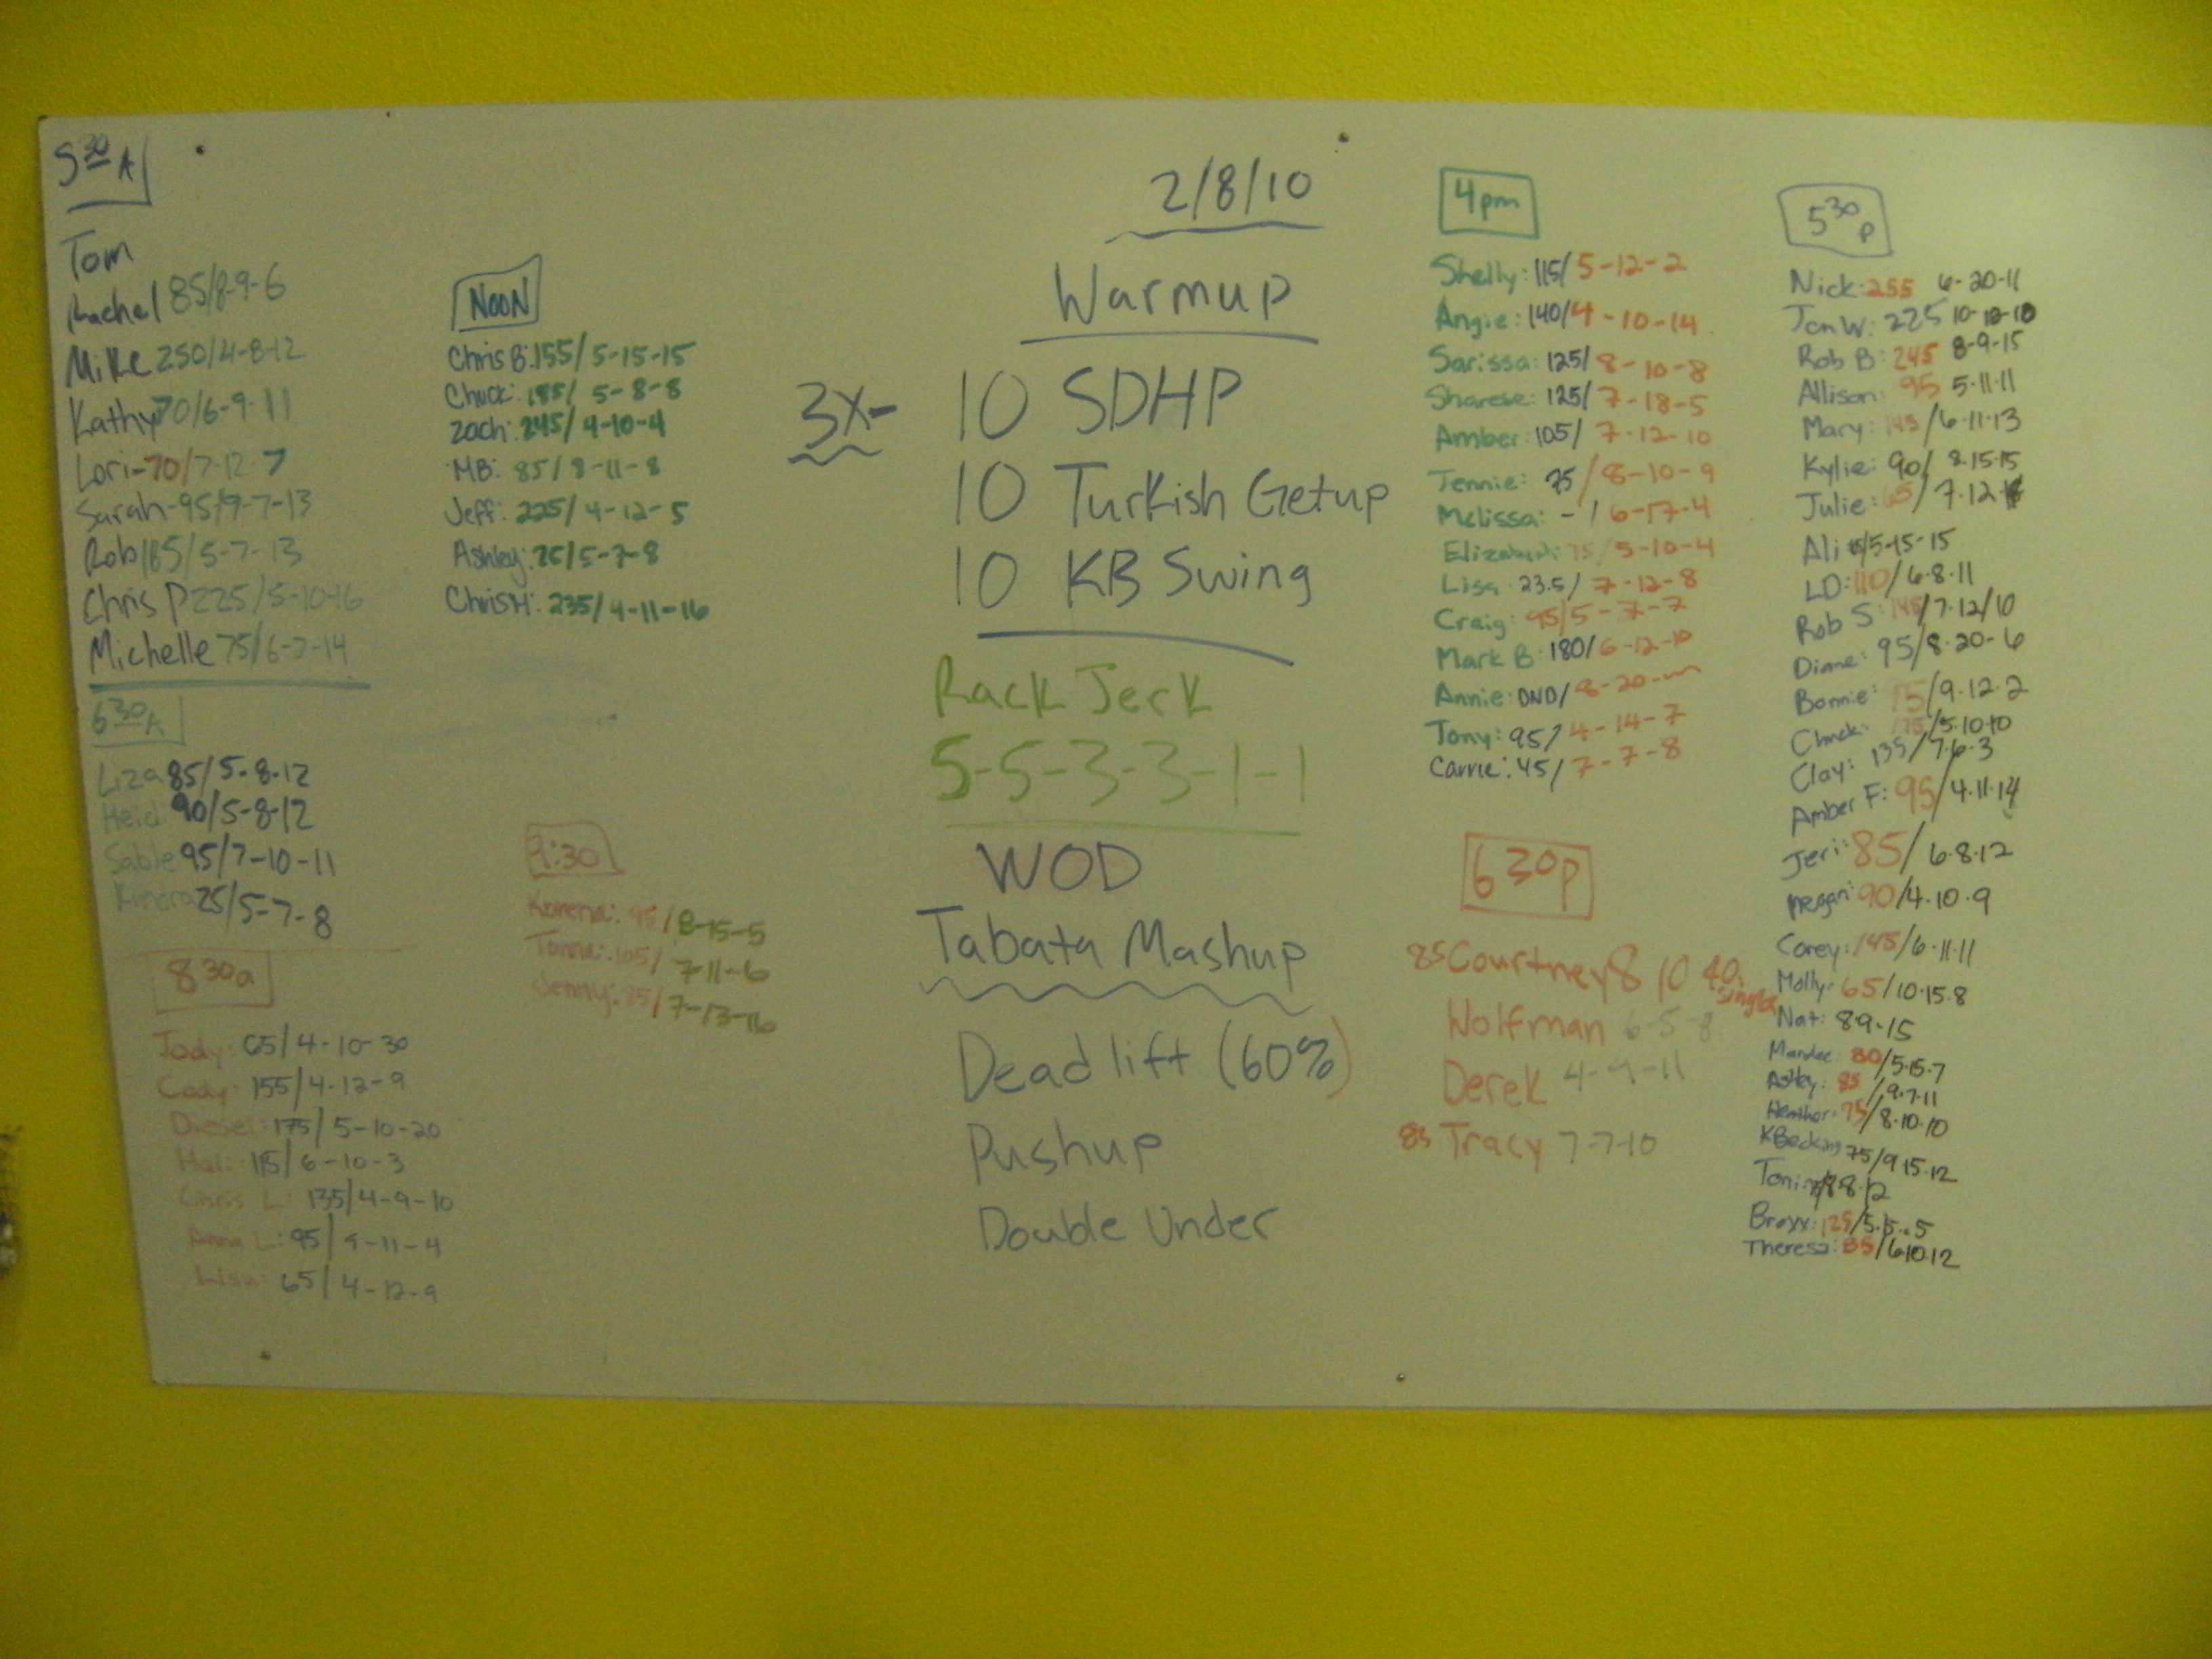 5 30 A
Tom
Rachel 85/8-9-6
Mike 250/4-8-12
Kathy 70/6-9-11
Lori-70/7-12-7
Sarah-95/9-7-13
Rob 185/5-7-13
Chris P 225/5-10-16
Michelle 75/6-7-14
6 30 A
Liza 85/5-8-12
Heidi 90/5-8-12
Sable 95/7-10-11
25/5-7-8
8 30a
Jody: 65/4-10-30
Cody: 155/4-12-9
Diesel: 175/5-10-20
Hali: 115/6-10-3
Chris L: 135/4-9-10
Anna L: 95/ -11-4
Lisa: 65/4-12-9
NOON
Chris B: 155/5-15-15
Chuck: 185/5-8-8
Zach: 245/4-10-4
MB: 85/8-11-8
Jeff: 225/4-12-5
Ashley: 25/5-7-8
Chris H: 235/4-11-16
9:30
Korena: 95/8-15-5
105/7-11-6
Jenny: 85/7-13-16
2/8/10
Warmup
3x- 10 SDHP
10 Turkish Getup
10 KB Swing
Rack Jerk
5-5-3-3-1-1
WOD
Tabata Mashup
Deadlift (60%)
Pushup
Double Under
4pm
Shelly: 115/5-12-2
Angie: 140/4-10-14
Sarissa: 125/8-10-8
Sharese: 125/7-18-5
Amber: 105/7-12-10
Jennie: 75/8-10-9
Melissa: -/6-17-4
Elizabeth: 75/5-10-4
Lisa: 23.5/7-12-8
Craig: 95/5-7-7
Mark B: 180/6-12-10
Annie: DND/8-20-
Tony: 95/4-14-7
Carrie: 45/7-7-8
6 30p
85 Courtney 8 10 40 singles
Wolfman 6-5-8
Derek 4-9-11
85 Tracy 7-7-10
5 30 p
Nick: 255 6-20-11
Jon W: 225 10-10-10
Rob B: 245 8-9-15
Allison: 95 5-11-11
Mary: 145/6-11-13
Kylie: 90/8-15-15
Julie: 65/7-12-
Ali /5-15-15
LD: 110/6-8-11
Rob S: 145/7-12/10
Diane: 95/8-20-6
Bonnie: 75/9-12-2
Chuck: 175/5-10-10
Clay: 135/7-6-3
Amber F: 95/4-11-14
Jeri: 85/6-8-12
Megan: 90/4-10-9
Corey: 145/6-11-11
Molly: 65/10-15-8
Nat: 8-9-15
Mandee: 80/5-15-7
Ashley: 85/9-7-11
Heather: 75/8-10-10
75/9-15-12
Toni: 8-8-12
Braxx: 125/5-5-5
Theresa: 85/6-10-12